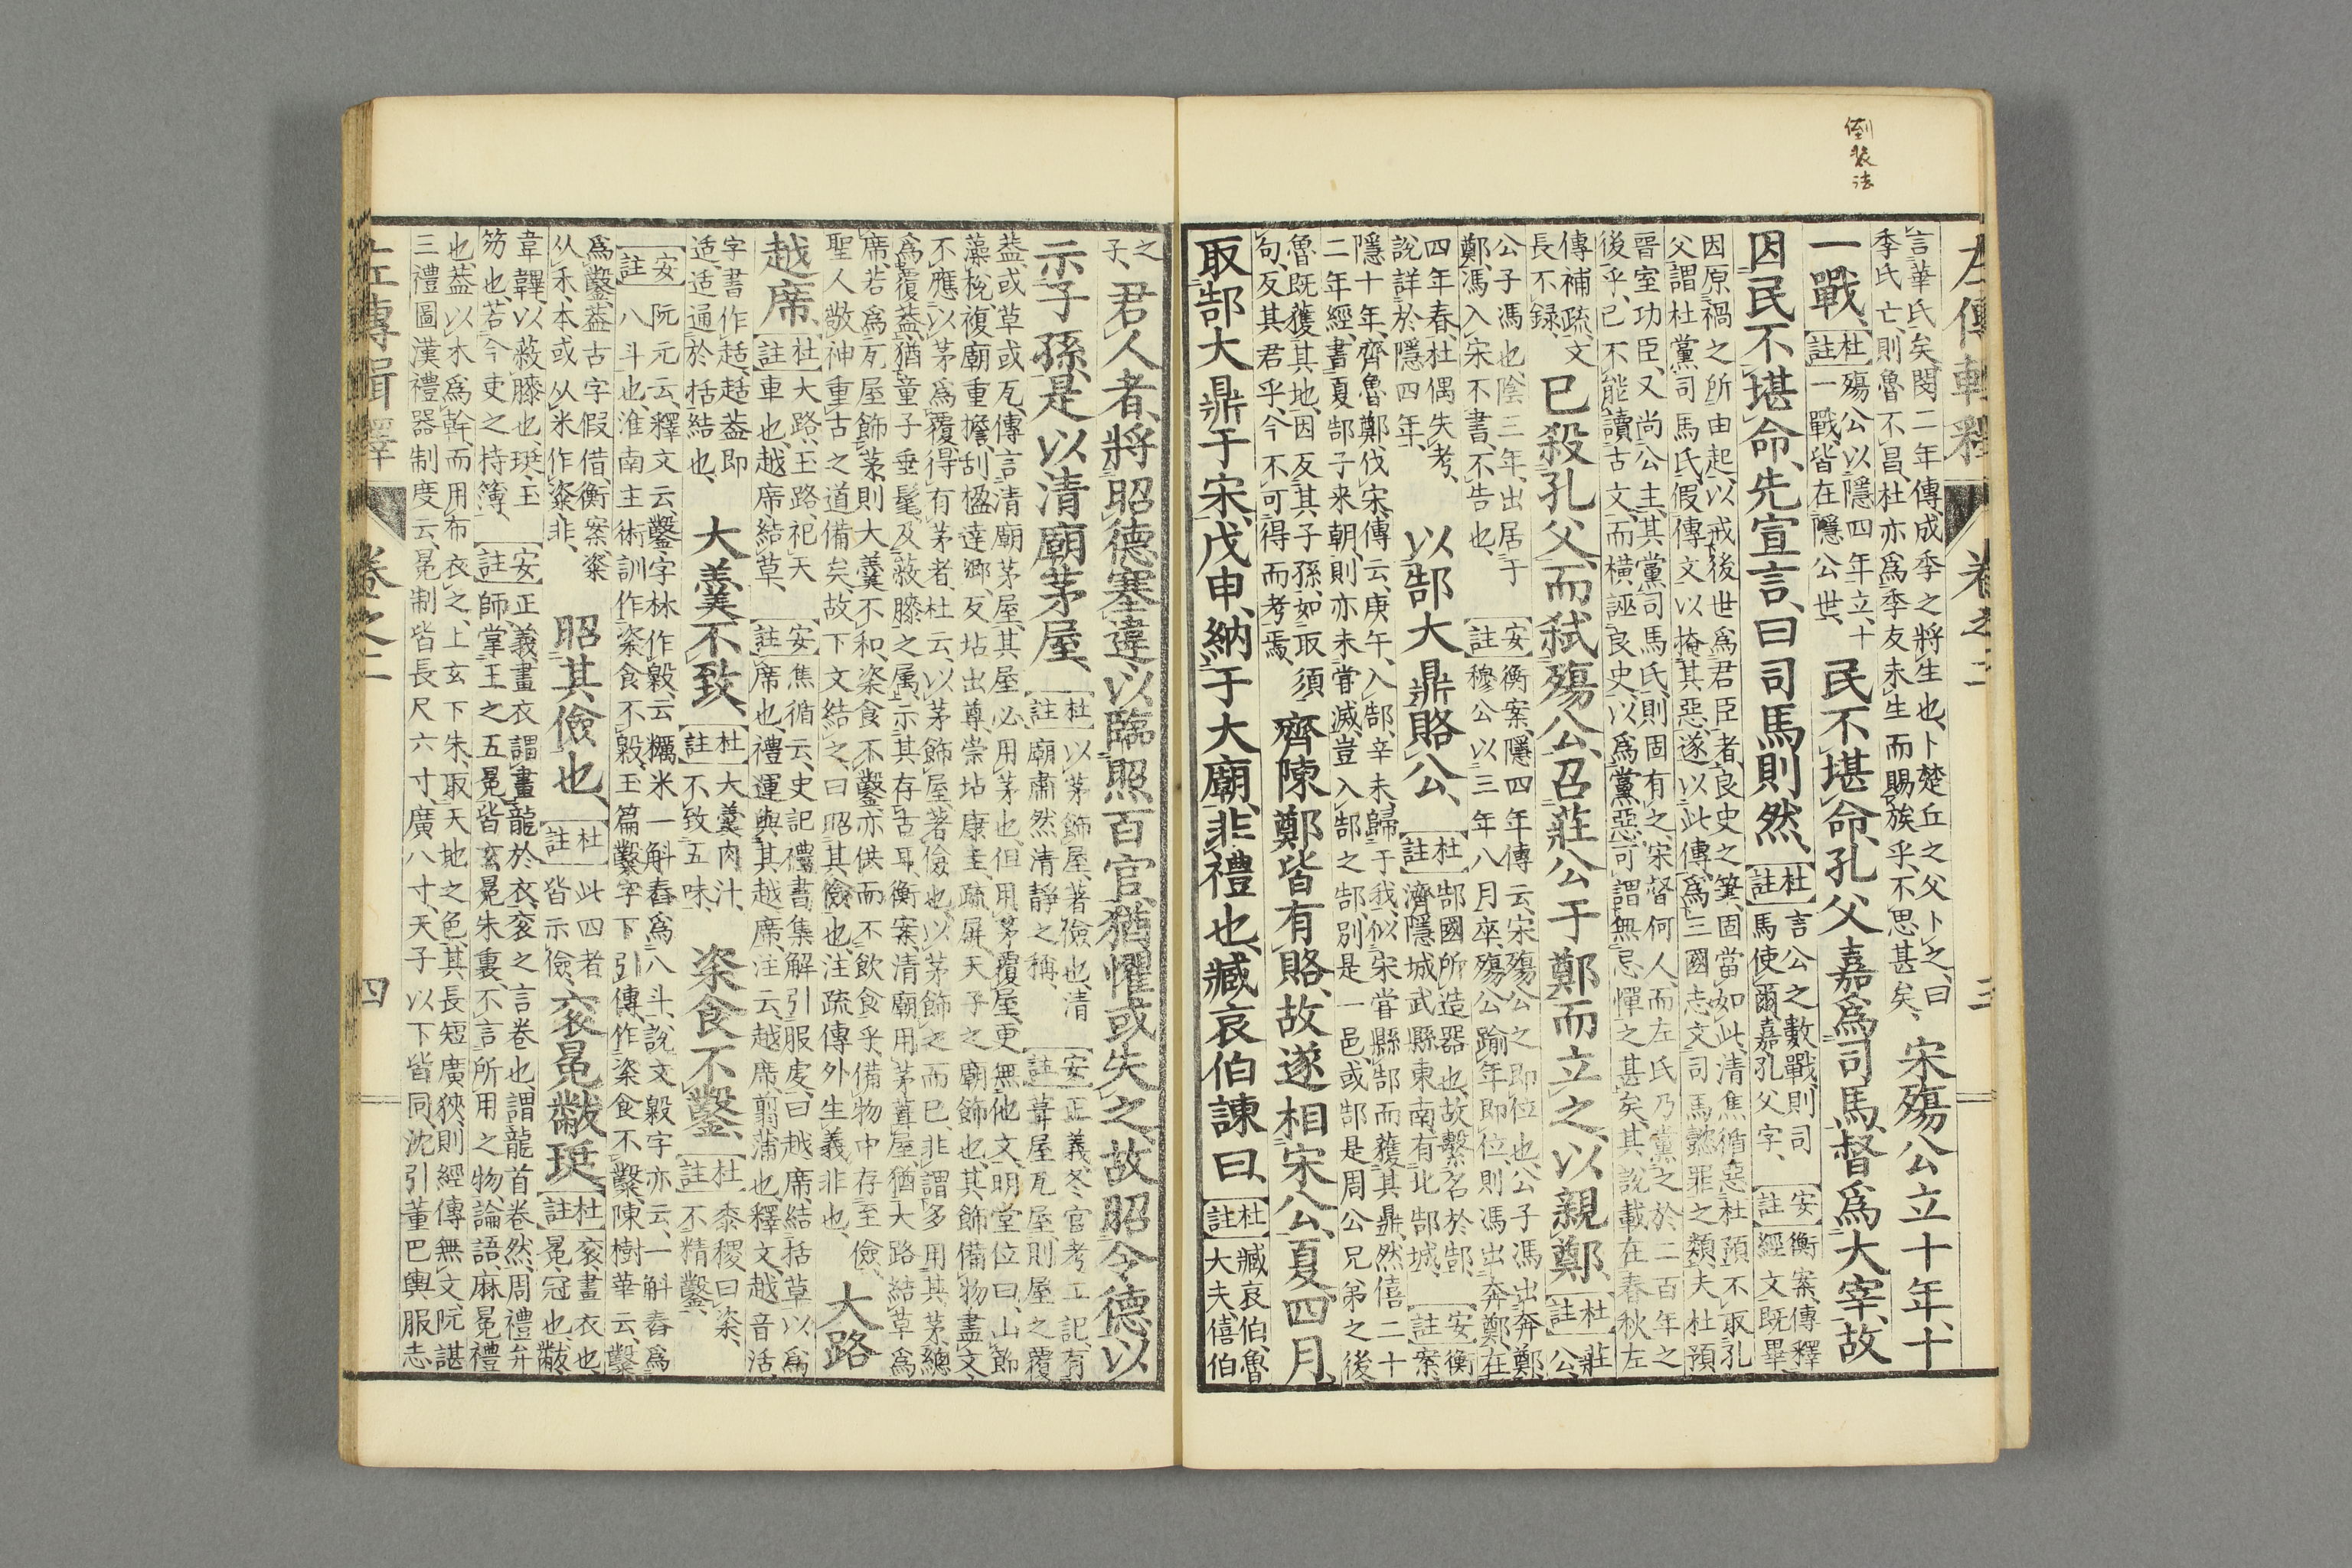 倒裝法
左傳輯釋 卷之二 三
言華氏矣、閔二年傳、成季之將生也、卜楚丘之父卜之、曰
季氏亡、則魯不昌、杜亦爲季友未生而賜族乎、不思甚矣、
宋殤公立十年、十
一戰、
杜註 殤公以隱四年立、十
一戰皆在隱公世、
民不堪命、孔父嘉爲司馬、督爲大宰、故
因民不堪命、先宣言、曰司馬則然、
杜註 言公之數戰、則司
馬使爾、嘉孔父字、
安註 衡案、傳釋
經文既畢、
因原禍之所由起、以戒後世爲君臣者、良史之筆、固當如此、清焦循惡杜預不取孔
父謂杜黨司馬氏、假傳文以掩其惡、遂以此傳爲三國志文司馬懿罪之類、夫杜預
晉室功臣、又尚公主、其黨司馬氏、則固有之、宋督何人、而左氏乃黨之於二百年之
後乎、已不能讀古文、而橫誣良史、以爲黨惡、可謂無忌憚之甚矣、其說載在春秋左
傳補疏、文
長不錄、
已殺孔父、而弒殤公、召莊公于鄭而立之、以親鄭、
杜註 莊
公、
公子馮也、隱三年、出居于
鄭、馮入宋不書、不告也、
安註 衡案、隱四年傳云、宋殤公之即位也、公子馮出奔鄭、
穆公以三年八月卒、殤公踰年即位、則馮出奔鄭、在
四年春、杜偶失考、
說詳於隱四年、
以郜大鼎賂公、
杜註 郜國所造器也、故繫名於郜、
濟隱城武縣東南、有北郜城、
安註 衡
案、
隱十年、齊魯鄭伐宋、傳云、庚午入郜、辛未歸于我、似宋嘗縣郜而獲其鼎、然僖二十
二年經、書夏郜子來朝、則亦未嘗滅、豈入郜之郜、別是一邑、或郜是周公兄弟之後、
魯既獲其地、因反其子孫、如取須
句、反其君乎、今不可得而考焉、
齊陳鄭皆有賂、故遂相宋公、夏四月、
取郜大鼎于宋、戊申、納于大廟、非禮也、臧哀伯諫曰、
杜註 臧哀伯、魯
大夫、僖伯
之
子、
君人者、將昭德塞違、以臨照百官、猶懼或失之、故昭令德以
示子孫、是以清廟茅屋、
杜註 以茅飾屋、著儉也、清
廟肅然清靜之稱、
安註 正義、冬官考工記、有
葺屋瓦屋、則屋之覆
葢、或草或瓦、傳言清廟茅屋、其屋必用茅也、但用茅覆屋、更無他文、明堂位曰、山節
藻梲、複廟重檐、刮楹達鄉、反坫出尊、崇坫康圭、疏屏、天子之廟飾也、其飾備物盡文、
不應以茅爲覆、得有茅者、杜云、以茅飾屋、著儉也、以茅飾之而已、非謂多用其茅總
爲覆葢、猶童子垂髦、及蔽膝之屬、示其存古耳、衡案、清廟用茅葺屋、猶大路結草爲
席、若爲瓦屋飾茅、則大羹不和、粢食不鑿、亦供而不飲食乎、備物中存至儉、
聖人敬神重古之道備矣、故下文結之、曰昭其儉也、注疏傳外生義、非也、
大路
越席、
杜註 大路、玉路、祀天
車也、越席、結草、
安註 焦循云、史記禮書集解引服虔、曰越席、結括草以爲
席也、禮運與其越席、注云、越席翦蒲也、釋文、越音活、
字書作趏、趏葢即
适、适通於括、結也、
大羹不致、
杜註 大羹、肉汁、
不致五味、
粢食不鑿、
杜註 黍稷曰粢、
不精鑿、
安註 阮元云、釋文云、鑿、字林作毇、云糲米一斛舂爲八斗、說文毇字亦云、一斛舂爲
八斗也、淮南主術訓作粢食不毇、玉篇鑿字下、引傳作粢食不鑿、陳樹華云、鑿
爲鑿、葢古字假借、衡案、粢
从禾、本或从米作粢、非、
昭其儉也、
杜註 此四者
皆示儉、
袞冕黻珽、
杜註 袞、畫衣也、
冕、冠也、黻、
韋韠、以蔽膝也、珽、玉
笏也、若今吏之持簿、
安註 正義、畫衣、謂畫龍於衣、袞之言卷也、謂龍首卷然、周禮弁
師、掌王之五冕、皆玄冕朱裏、不言所用之物、論語、麻冕禮
也、葢以木爲幹、而用布衣之、上玄下朱、取天地之色、其長短廣狹、則經傳無文、阮諶
三禮圖漢禮器制度云、冕制皆長尺六寸、廣八寸、天子以下皆同、沈引董巴輿服志
左傳輯釋 卷之二 四